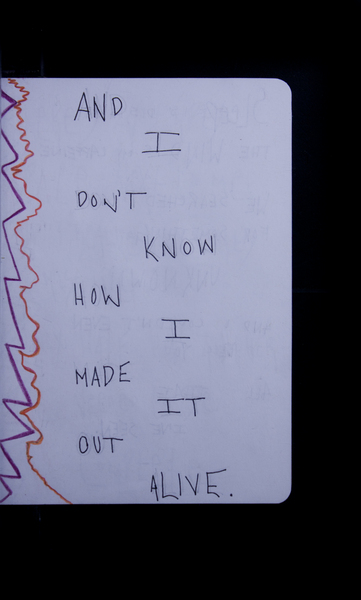 AND
I
DON'T
KNOW
HOW
I
MADE
IT
OUT
ALIVE.